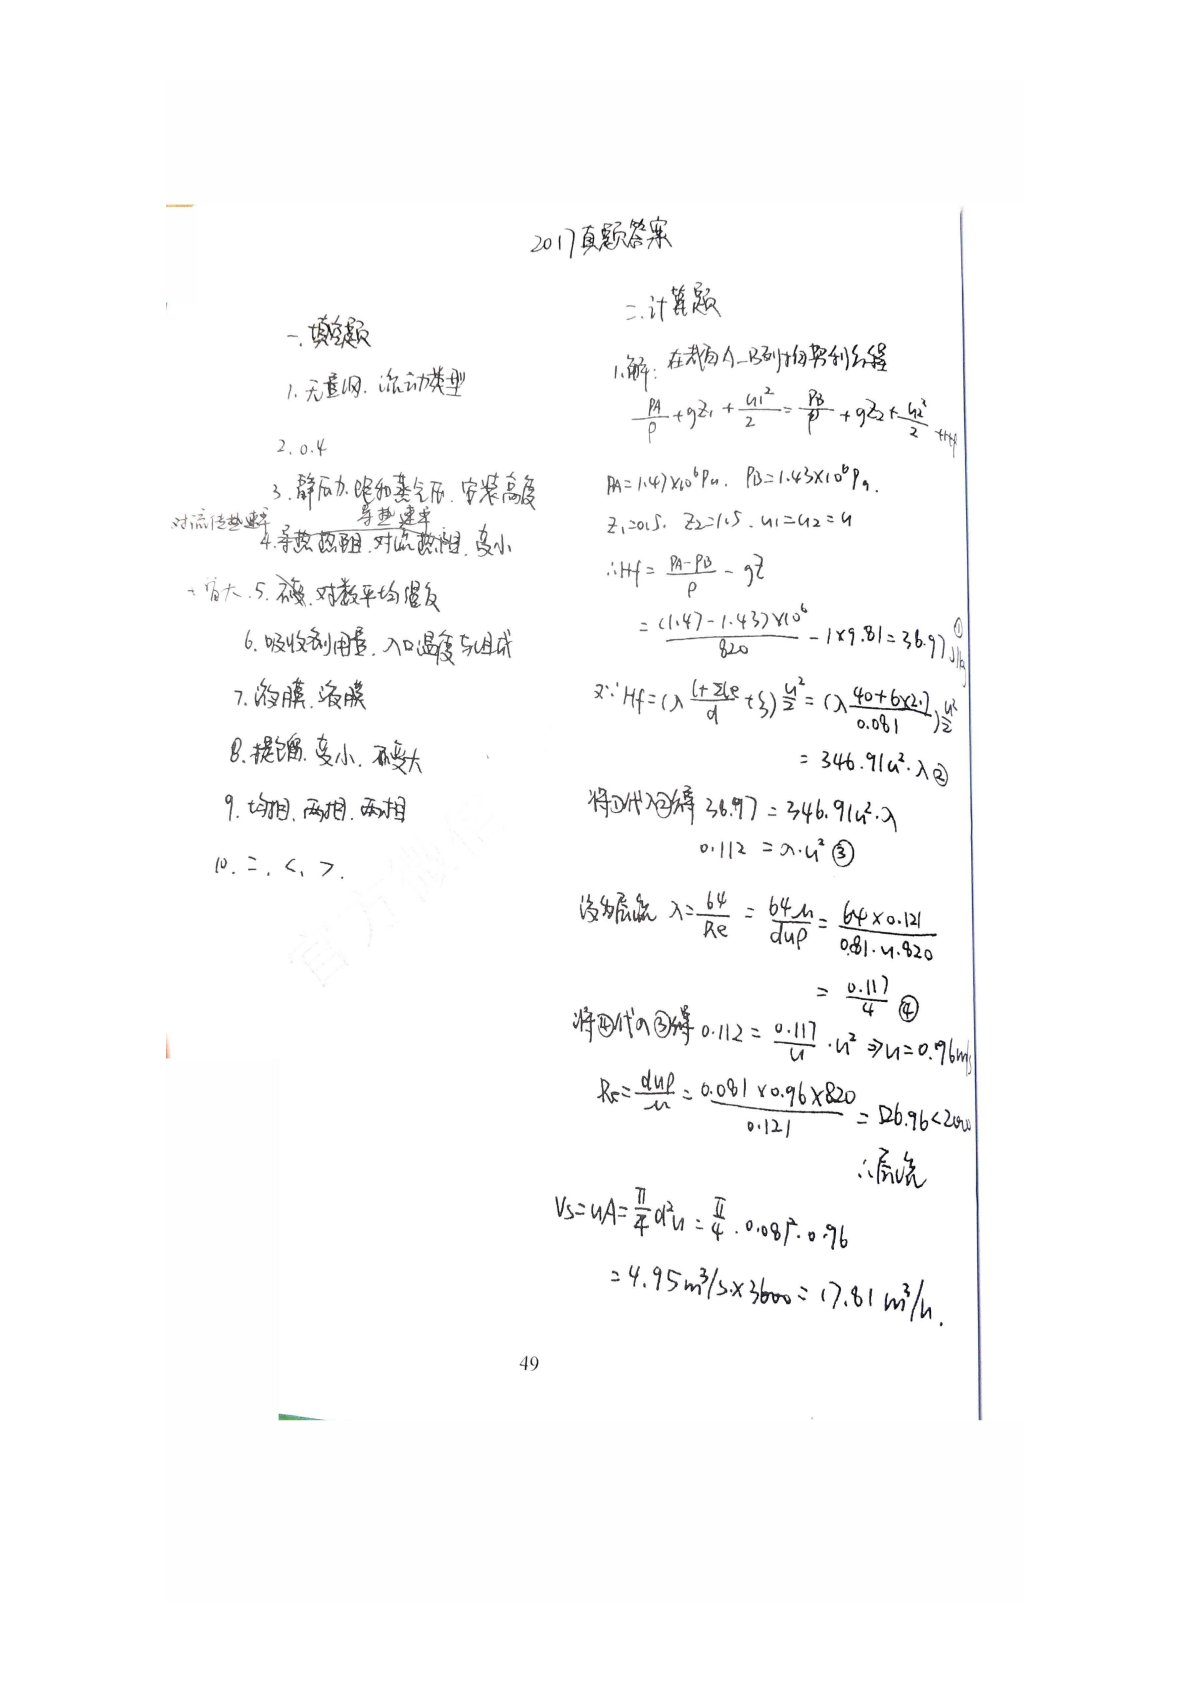 2017真题答案
一.填空题
1.无量纲.流动类型
2.0.4
3.静压力.饱和蒸气压.安装高度
对流传热速率 导热速率
4.导热热阻.对流热阻.变小
增大.5.不变.对数平均温度
6.吸收剂用量.入口温度与组成
7.液膜.液膜
8.提馏.变小.变大
9.均相.两相.两相
10.=.<.>.
二.计算题
1.解:在截面A-B列柏努利方程
PA/ρ+gZ1+u1²/2=PB/ρ+gZ2+u2²/2+Hf
PA=1.47×10⁶Pa. PB=1.43×10⁶Pa.
Z1=0.5. Z2=1.5. u1=u2=u
∴Hf=(PA-PB)/ρ-gZ
=(1.47-1.43)×10⁶/820-1×9.81=38.97J/kg ①
又∵Hf=(λ(l+Σle)/d+ξ)u²/2=(λ(40+6×2.7)/0.081)u²/2
=346.91u²·λ②
将①代入②得38.97=346.91u²·λ
0.112=λ·u²③
设为层流 λ=64/Re=64μ/duρ=64×0.121/0.81·u·820
=0.117/u④
将④代入③得0.112=0.117/u·u²⇒u=0.96m/s
Re=duρ/μ=0.081×0.96×820/0.121=526.96<2000
∴层流
Vs=uA=π/4d²u=π/4·0.081²·0.96
=4.95m³/s.×3600=17.81m³/h.
49